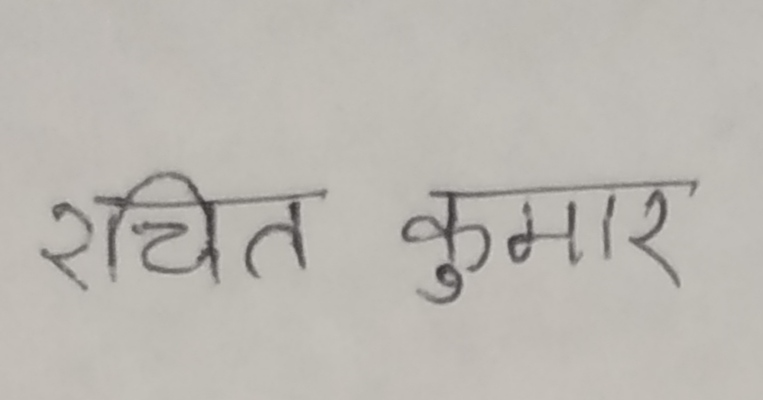 रचित कुमार